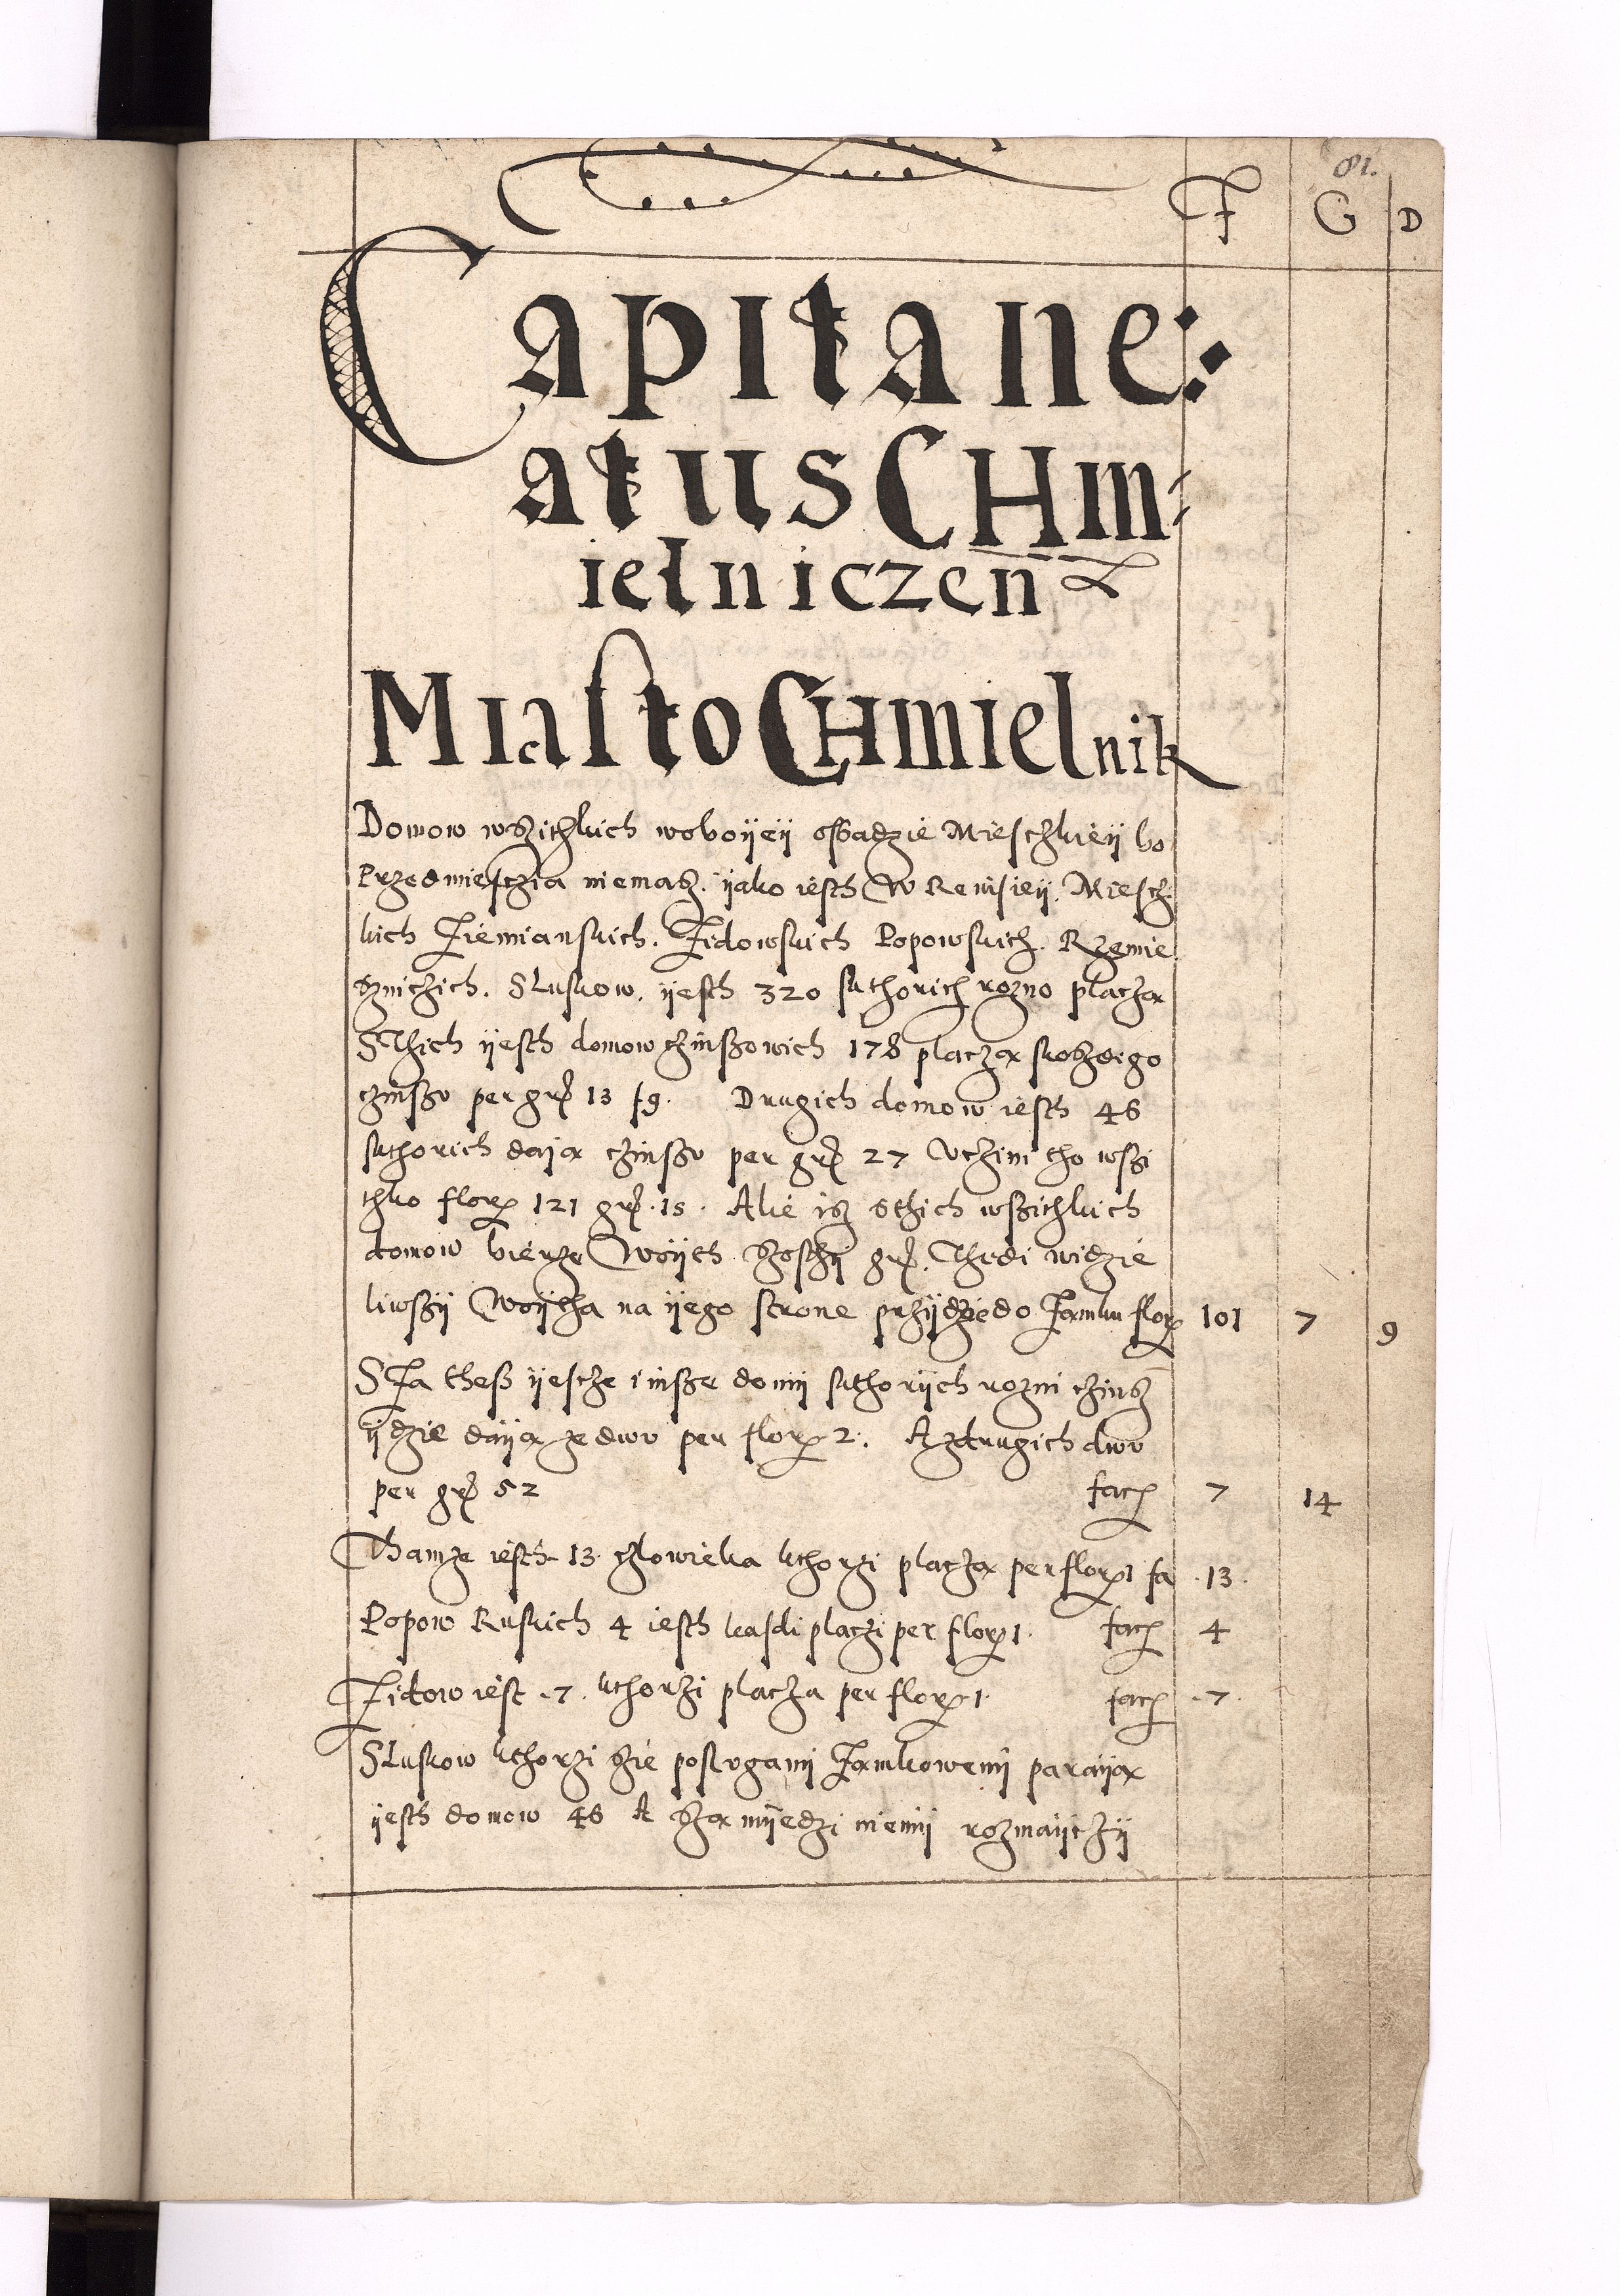 81.
F G D
Capitane:
atus CHm:
ielniczen
Miasto CHmielnik
Domow wszithkich woboyey ossadzie Miesczkiey bo
Przedmiesczia niemasz. yako iesth W Rewisiey. Miescz
kich Ziemianskich. Zidowskich Popowskich. Rzemie
sznichich. Sluskow. yesth 320 skthorich rozno placza
SThich yesth domow czinszowich 178 placza skoszdego
czinszu per gr 13 ß 9. Drugich domow iesth 46
skthorich daja czinszu per gr 27 Vczini tho wszi
thko flor 121 gr. 15. Alie isz sthich wszithkich
domow bierze Woyth Szosthy gr. Thedi widzie
liwszy Woytha na yego strone przydzie do Zamku flor 101 7 9
SZa thess yescze insze domy skthorych rozni czinsz
ydzie dayą ze dwu per flor 2. A zdrugich dwu
per gr 52 fac 7 14
Thamze iesth 13 człowieka kthorzi placza per flor 1 fa 13.
Popow Ruskich 4 iesth kasdi placzi per flor 1. fac 4
Zidow iest .7. kthorzi placza per flor 1. fac .7.
Sluskow kthorzi szie poslugami Zamkowemi parayą
yesth domow 46 A szą myedzi niemy rozmayczy